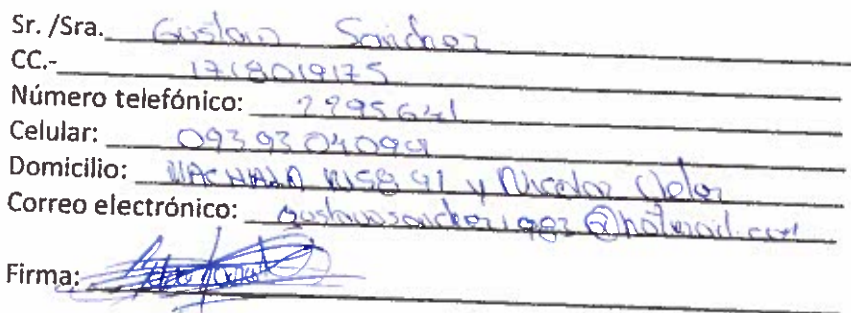 Sr. /Sra. Gustavo Sanchez
CC.- 1718019175
Número telefónico: 2295641
Celular: 0939304099
Domicilio: MACHALA N58 91 y Nicolas
Correo electrónico: gustavosanchez1983@hotmail.com
Firma: